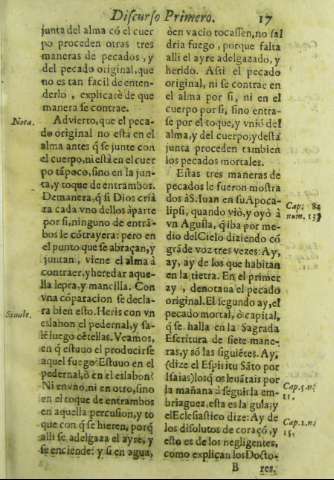 Discurso Primero. 17
junta del alma cõ el cuer
po proceden otras tres
maneras de pecados, y
del pecado original, que
no es tan facil de enten-
derlo, explicarè de que
manera se contrae.
Nota.
Advierto, que el peca-
do original no està en el
alma antes q̃ se junte con
el cuerpo, ni està en el cuer
po tãpoco, sino en la jun-
ta, y toque de entrambos.
Demanera, q̃ si Dios criá
ra cada vno dellos àparte
por si, ninguno de entrã-
bos le cõtrayera: pero en
el punto que se abraçan, y
juntan, viene el alma à
contraer, y heredar aque-
lla lepra, y mancilla. Con
vna cõparacion se decla-
ra bien esto. Heris con vn
Simile.
eslabon el pedernal, y sa-
lē luego cētellas. Veamos,
en q̃ estuuo el producirse
aquel fuego? Estuuo en el
pedernal, ò en el eslabon?
Ni en vno, ni en otro, sino
en el toque de entrambos
en aquella percusion, y to
que con q̃ se hieren, porq̃
alli se adelgaza el ayre, y
se enciende: y si en agua,
ò en vacio tocassen, no sal
dria fuego, porque falta
alli el ayre adelgazado, y
herido. Assi el pecado
original, ni se contrae en
el alma por si, ni en el
cuerpo por si, sino entra-
se por el toque, y vniõ del
alma, y del cuerpo; y desta
junta proceden tambien
los pecados mortales.
Estas tres maneras de
pecados le fueron mostra
dos à S. Iuan en su Apoca-
Cap. 8.
lipsi, quando viò, y oyò à
num. 13.
vn Aguila, q̃ iba por me-
dio del Cielo diziendo cõ
grãde voz tres vezes: Ay,
ay, ay de los que habitan
en la tierra. En el primer
ay, denotaua el pecado
original. El segundo ay, el
pecado mortal, ò capital,
q̃ se halla en la Sagrada
Escritura de siete mane-
ras, y sõ las siguiētes. Ay,
(dize el Espiritu Sãto por
Isaias) los q̃ os leuãtais por
Cap. 5. n.
la mañana à seguir la em-
11.
briaguez, esta es la gula; y
el Eclesiastico dize: Ay de
Cap. 2. n.
los disolutos de coraçõ, y
15.
esto es de los negligentes,
como explican los Docto-
B res.